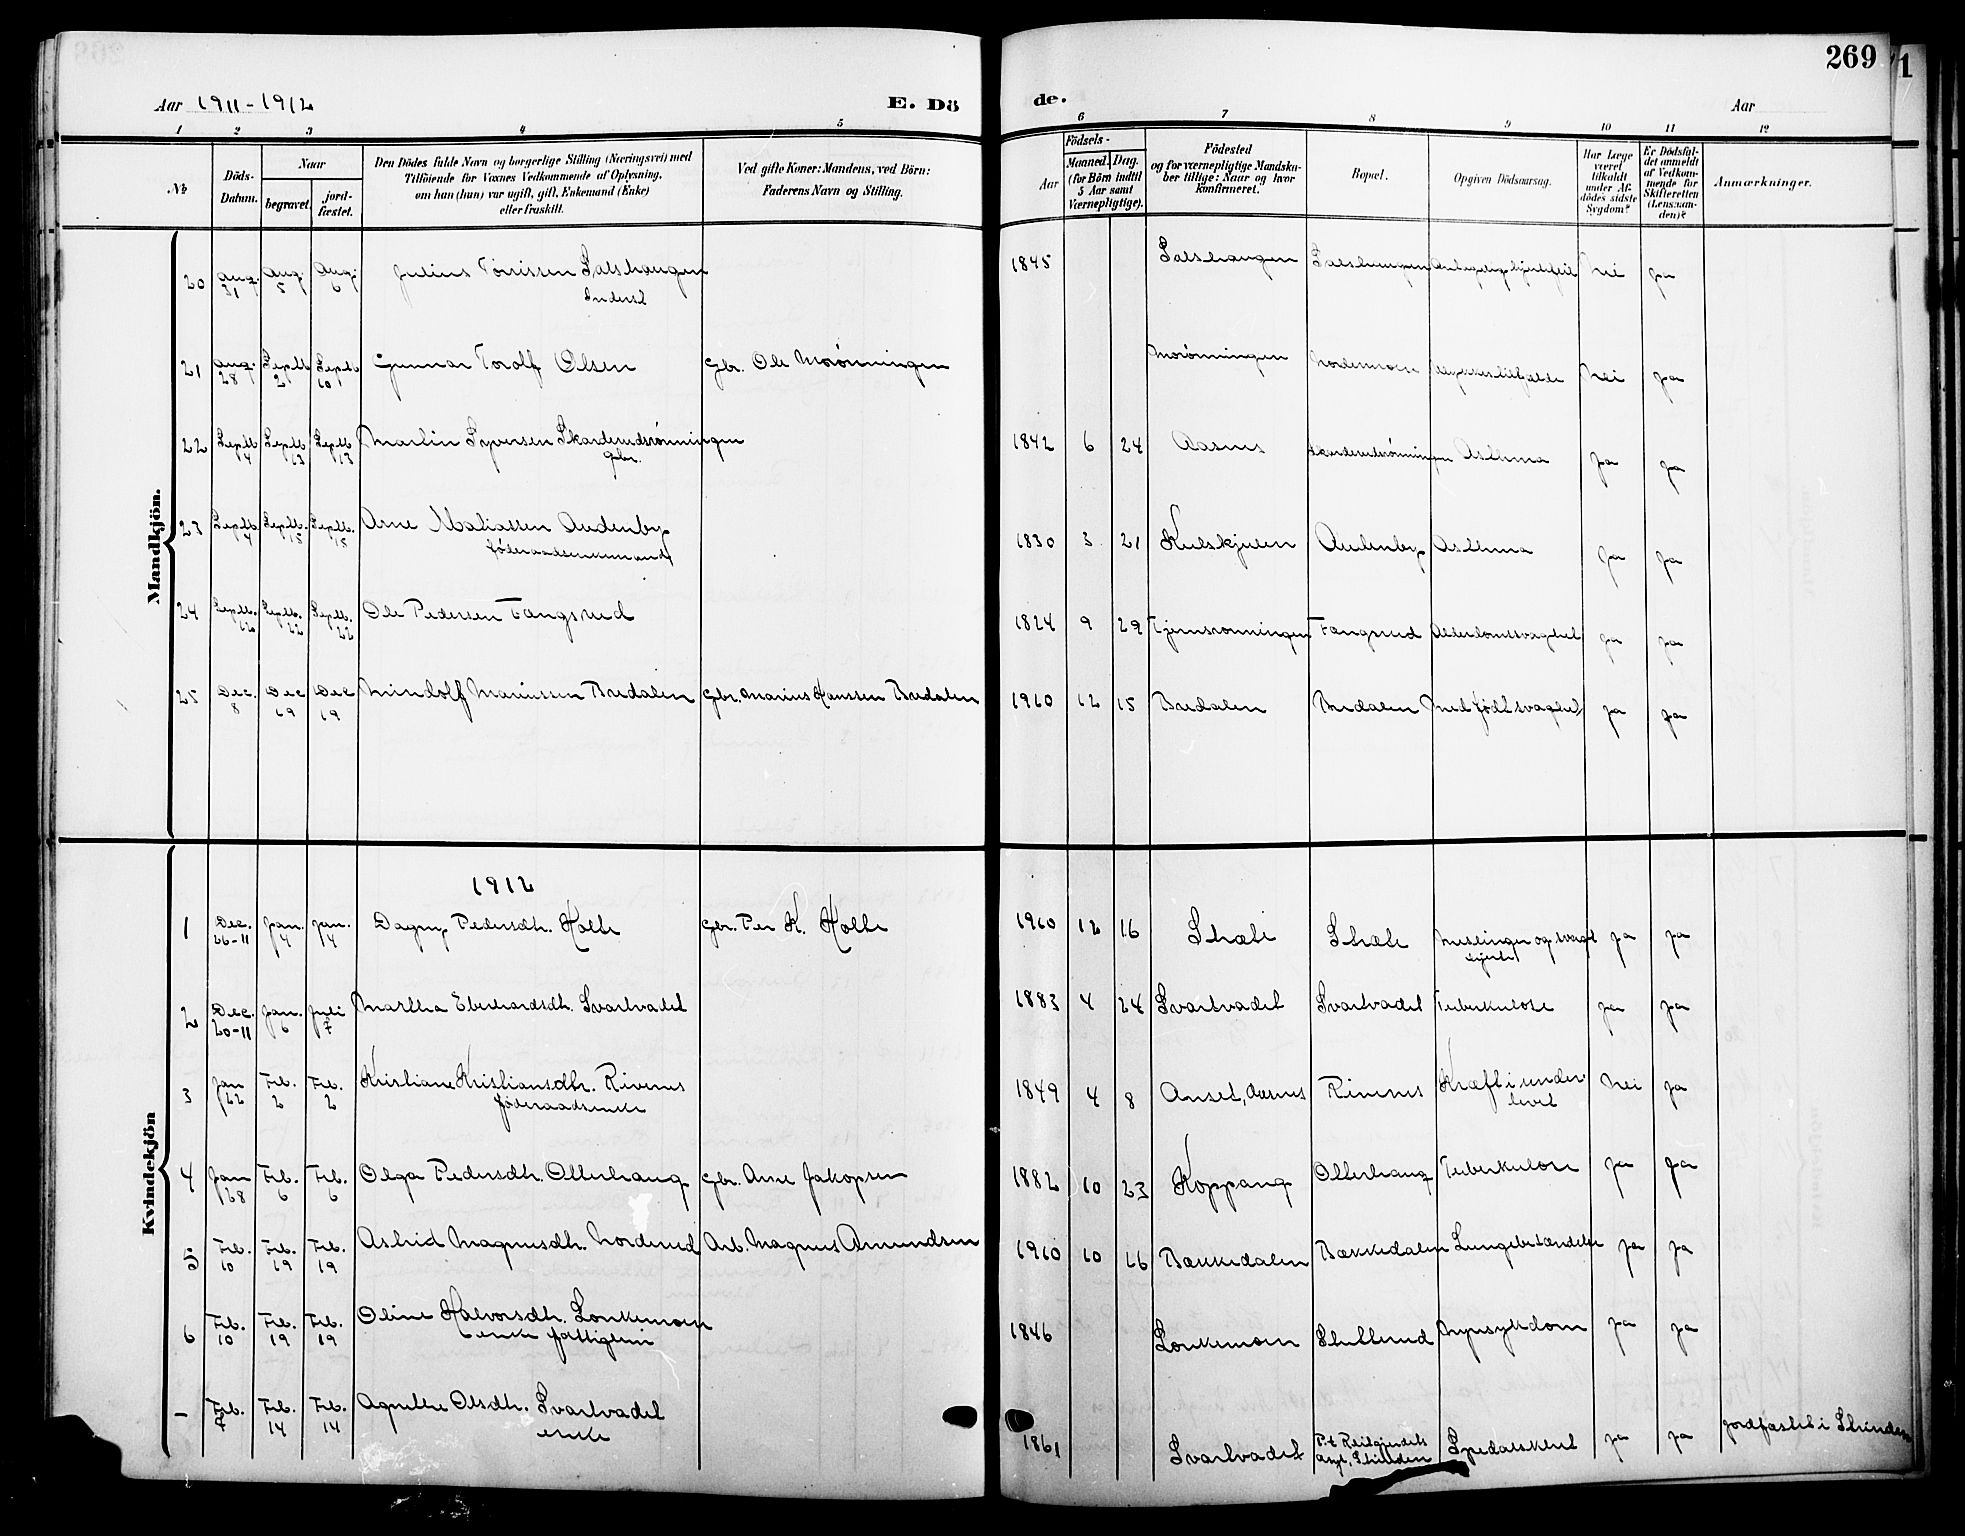 269
1
Aar 1911-1912
E. Dö
de.
Aar
1 2 3 4 5
6 7 8 9 10 11 12
№
Döds-
Datum.
Naar
begravet.
jord-
fæstet.
Den Dödes fulde Navn og borgerlige Stilling (Næringsvei) med
Tilföiende for Voxnes Vedkommende af Oplysning,
om han (hun) var ugift, gift, Enkemand (Enke)
eller fraskilt.
Ved gifte Koner: Mandens, ved Börn:
Faderens Navn og Stilling.
Födsels-
Aar
Maaned. Dag.
(for Börn indtil
5 Aar samt
Værnepligtige).
Födested
og for værnepligtige Mandska-
ber tillige: Naar og hvor
konfirmeret.
Bopæl.
Opgiven Dödsaarsag.
Har Læge
været
tilkaldt
under Af-
dödes sidste
Sygdom?
Er Dödsfal-
det anmeldt
af Vedkom-
mende for
Skifteretten
(Lensman-
den)?
Anmærkninger.
Mandkjön.
20 Aug. 31 Aug. 5 Aug. 6 Julius Törrissen Satshaugen
Inderst
1845 Satshaugen Satshaugen hjertefeil Nei ja
21 Aug. 28 Septb. 2 Septb. 10 Gunnar Torolf Olsen Gbr. Ole Morönningen
Morönningen Nordenmoen Nei ja
22 Septb. 4 Septb. 13 Septb. 13 Martin Syversen Skarderudsrönningen
Gbr.
1842 6 24 Aasnes Skarderudsrönningen Asthma ja ja
23 Septb. 4 Septb. 15 Septb. 15 Arne Matiassen Audenby
föderaadsenkemand
1830 3 21 Kulskjulen Audenby Asthma ja ja
24 Septb. 12 Septb. 22 Septb. 22 Ole Pedersen Fangsrud
1824 9 29 Tjernsrönningen Fangsrud Alderdomssvaghet ja ja
25 Dec. 8 Dec 19 Dec 19 Mindolf Mariussen Bredalen Gbr. Marius Hanssen Bredalen
1910 12 15 Bredalen Bredalen Medfödt svaghet ja ja
Kvindekjön
1912
1 Dec. 26-11 Jan. 4 Jan. 4 Dagny Pedersdtr. Holte Gbr. Per K. Holte
1910 12 16 Skæle Skæle Meslinger og svagt
hjerte ja ja
2 Dec. 20-11 Jan. 6 Juli 7 Martha Eberhardsdtr. Svartvadet
1883 4 24 Svartvadet Svartvadet Tuberkulose ja ja
3 Jan 22 Feb. 2 Feb. 2 Kristiane Kristiansdtr. Rivenes
föderaadsenke
1849 4 8 Anset, Aasnes Rivenes Kræft i under-
livet Nei ja
4 Jan 28 Feb. 6 Feb. 6 Olga Pedersdtr. Otterhaug Gbr. Arne Jakopsen
1882 10 23 Koppang Otterhaug Tuberkulose ja ja
5 Feb. 10 Feb. 19 Feb. 19 Astrid Magnusdtr. Norderud Arb. Magnus Amundsen
1910 10 16 Bækkedalen Bækkedalen Lungebetændelse ja ja
6 Feb. 10 Feb. 19 Feb. 19 Oline Halvorsdtr. Lonkemoen
enke fattiglem
1846 Lonkemoen Sletterud Nyresykdom ja ja
- Feb. 7 Feb. 14 Feb. 14 Agnethe Olsdtr. Svartvadet
enke
1861 Svartvadet P.t. Reitgjerdets
asyl, Strinden Spedalskhet ja ja jordfæstet i Strinden